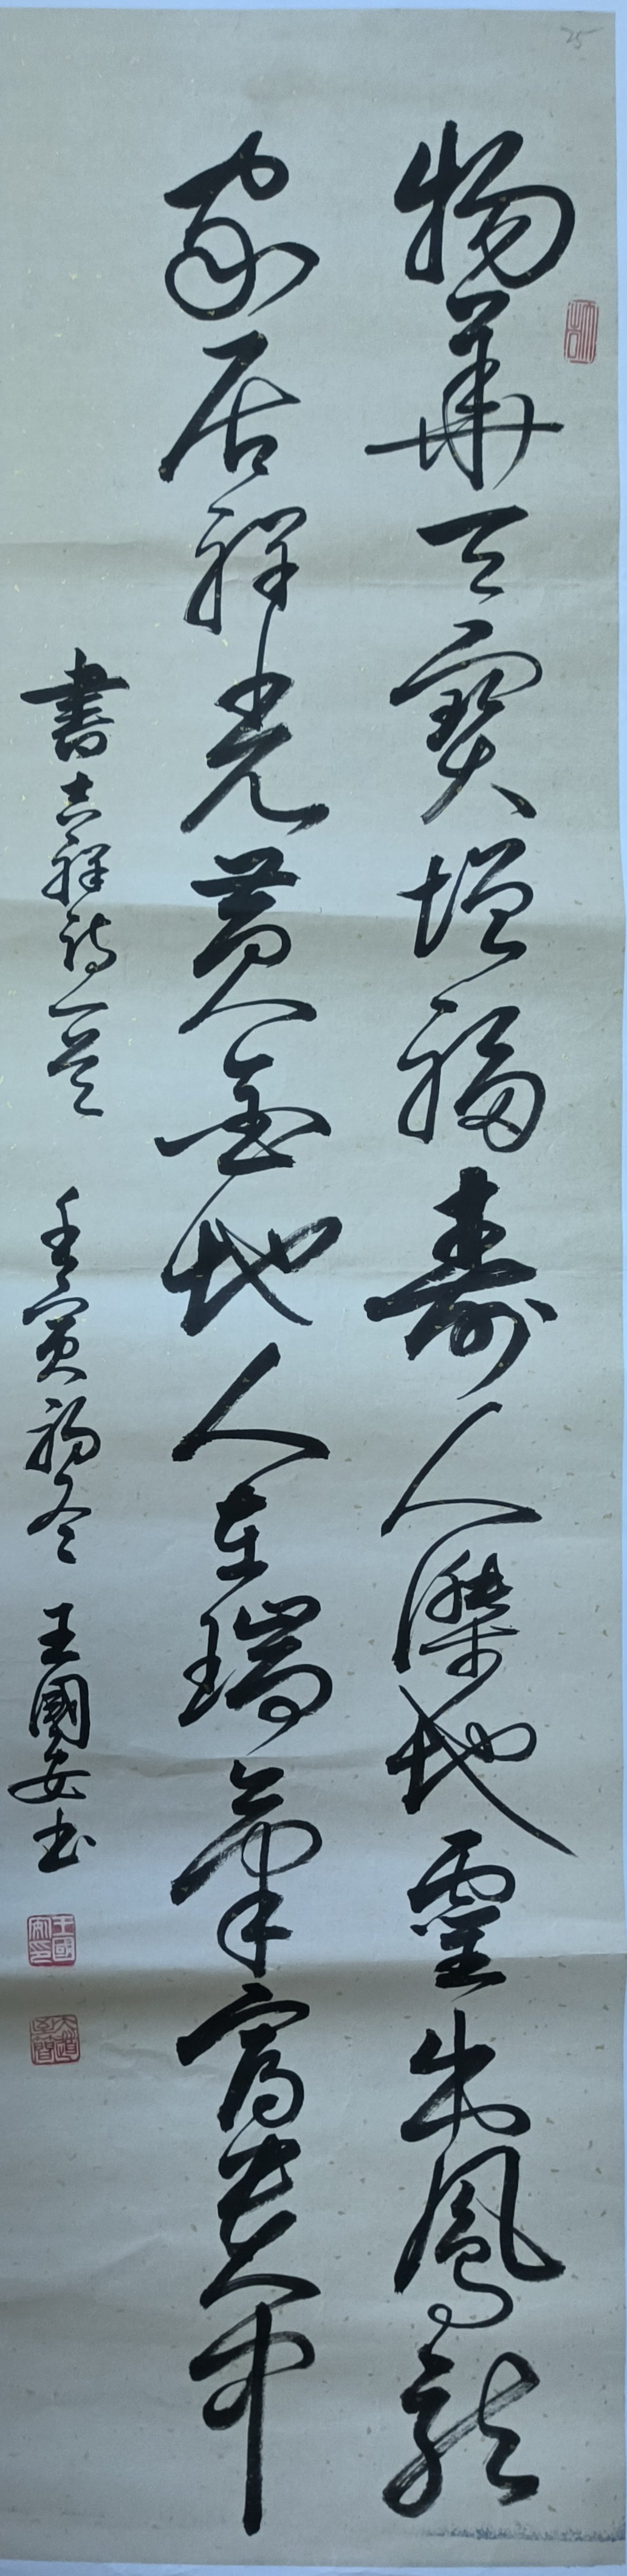 物華天寶增福壽人傑地靈出鳳龍
家居祥光黃金地人在瑞氣富貴中
書吉祥詩一首 壬寅初冬 王國安書
王國安印
25